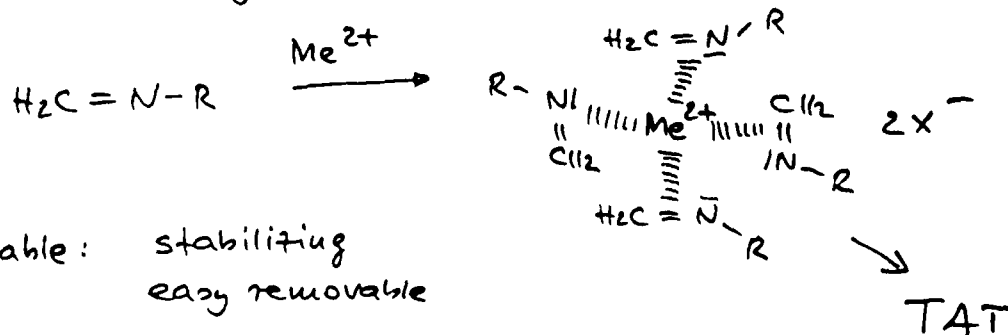 H₂C = N – R
Me²⁺
H₂C = N – R
R – N
CH₂
Me²⁺
CH₂
N – R
2X⁻
H₂C = N – R
able: stabilizing
easy removable
TAT